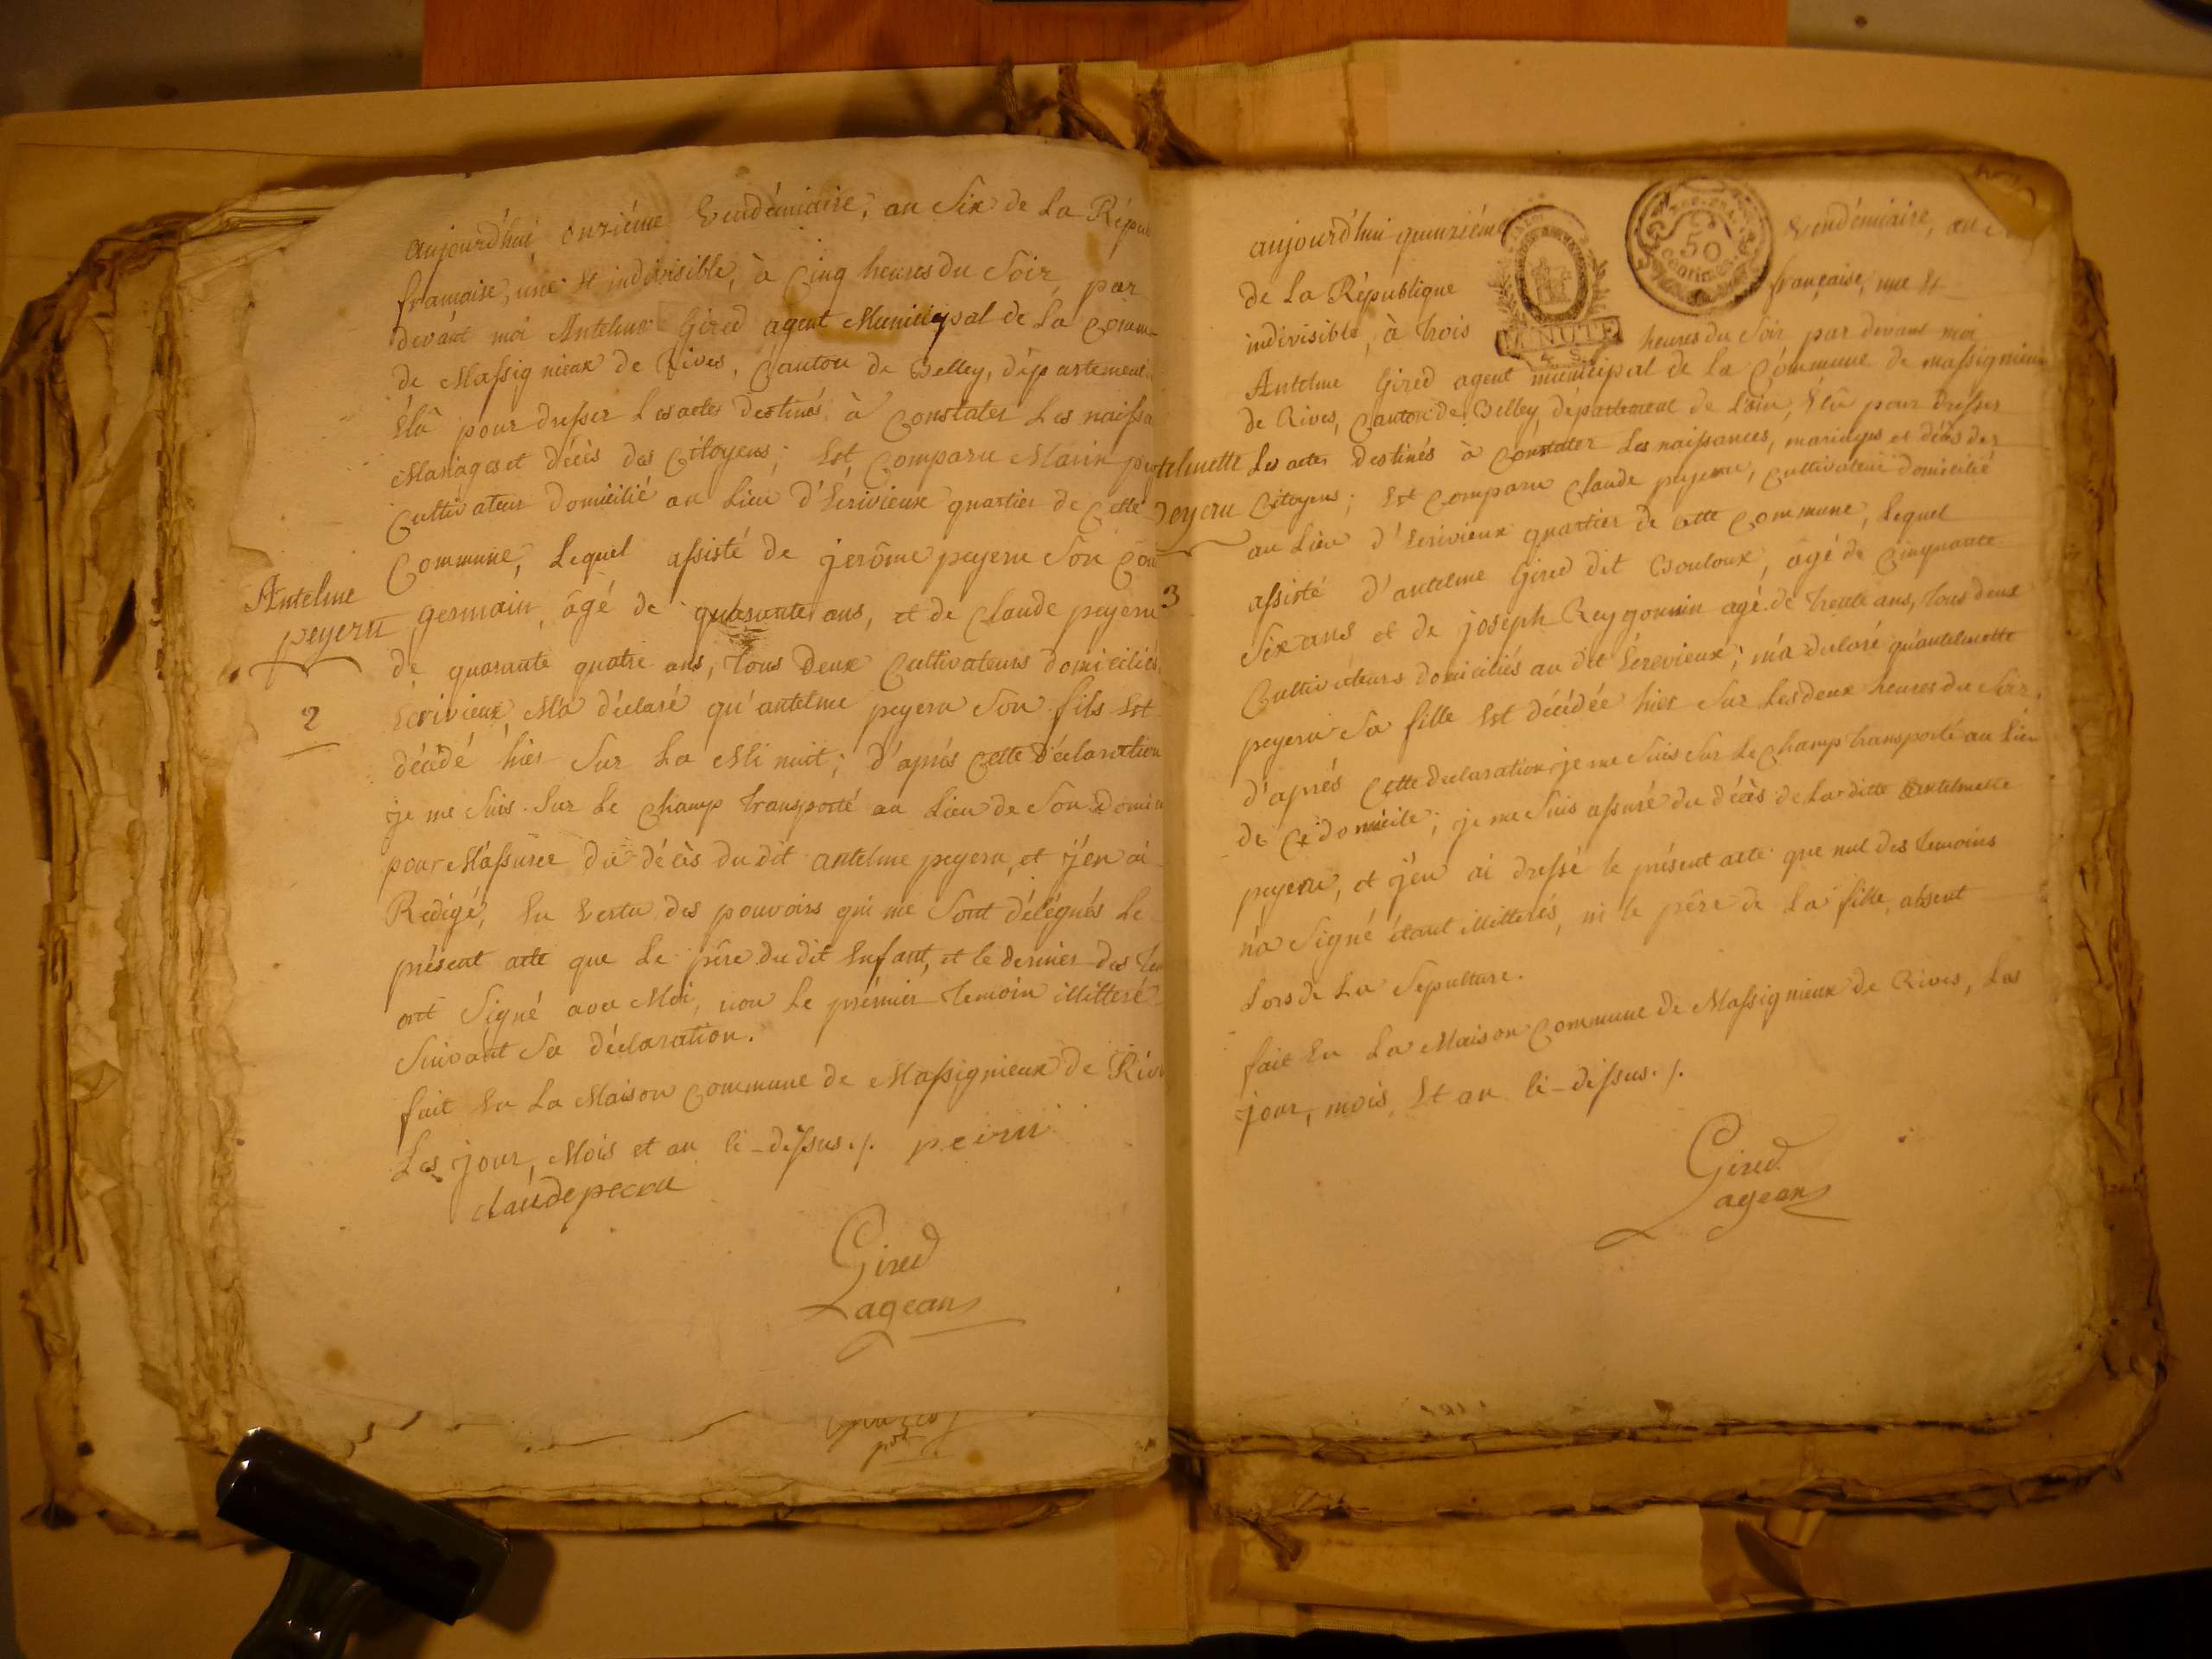 aujourd'hui onziéme Vendémiaire, an Six de La Répu
française, une et indivisible, à Cinq heures du Soir, par
devant moi Antelme Gired agent Municipal de La Com
de Massignieux de Rives, Canton de Belley, département
Élû pour dresser Les actes destinés à Constater Les naissa
Mariages et décès des Citoyens; Est Comparu Marin
Cultivateur domicilié au Lieu d'Ecrivieux quartier de Cette
Commune, Lequel assisté de jerôme peyeru Son Cou
germain, âgé de quarante ans, et de Claude peyeru
de quarante quatre ans, tous deux Cultivateurs domiciliés
Ecrivieux, M'a déclaré qu'antelme peyeru Son fils Est
décédé hier Sur La Mi nuit; d'aprés Cette déclaration
je me Suis Sur Le Champ transporté au Lieu de Son Domi
pour M'assurer du décès du dit antelme peyeru, et j'en ai
Redigé, En Vertu des pouvoirs qui me Sont délégués Le
présent acte que Le pére du dit Enfant, et le dernier des
ont Signé avec Moi, non Le prémier temoin illitteré
Suivant Sa déclaration.
fait En La Maison Commune de Massignieux de Riv
Les jour, Mois et an Ci-dessus./. peiru
claude pecru
Gired
Lagean
Antelme
peyeru
2
aujourd'hui quinziéme Vendémiaire, an
de La République française, une et
indivisible, à trois heures du Soir par devant moi
Antelme Gired agent municipal de La Commune de massignieux
de Rives, Canton de Belley, département de L'ain, Élû pour dresser
Les actes destinés à Constater Les naissances, mariages et décès des
Citoyens; Est Comparu Claude peyeru, Cultivateur domicilié
au Lieu d'Ecrivieux quartier de cette Commune, Lequel
assisté d'antelme Gired dit Bouloux, âgé de Cinquante
Six ans et de joseph Reygonnin agé de trente ans, tous deux
Cultivateurs domiciliés au dit Ecrevieux; m'a déclaré qu'antelmette
peyeru Sa fille Est décédée hier Sur Les deux heures du Soir,
d'aprés Cette declaration je me Suis Sur Le Champ transporté au Lieu
de Ce domicile; je me Suis assuré du décès de La ditte Antelmette
peyeru, et j'en ai dressé le présent acte que nul des temoins
n'a Signé étant illitterés, ni le pére de La fille, absent
Lors de La Sepulture.
fait En La Maison Commune de Massignieux de Rives, Les
jour, mois Et an Ci-dessus./.
Gired
Lagean
telmette
peyeru
3
MINUTE
50
centimes